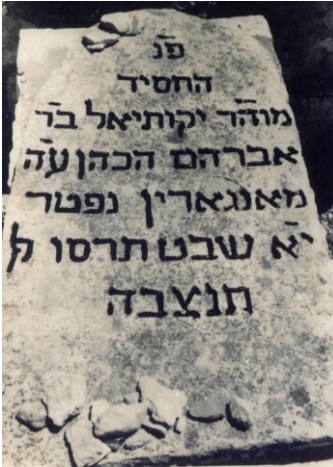 פנ
החסיד
מוהר יקותיאל בר
אברהם הכהן עה
מאונגארין נפטר
יא שבט תרסו ל
תנצבה